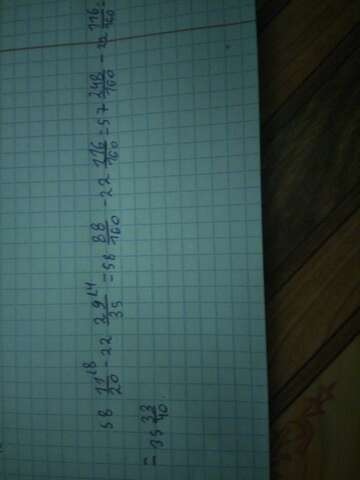 58 11/20 \8 - 22 29/35 \4 = 58 88/160 - 22 116/160 = 57 248/160 - 22 116/160 =
= 35 33/40